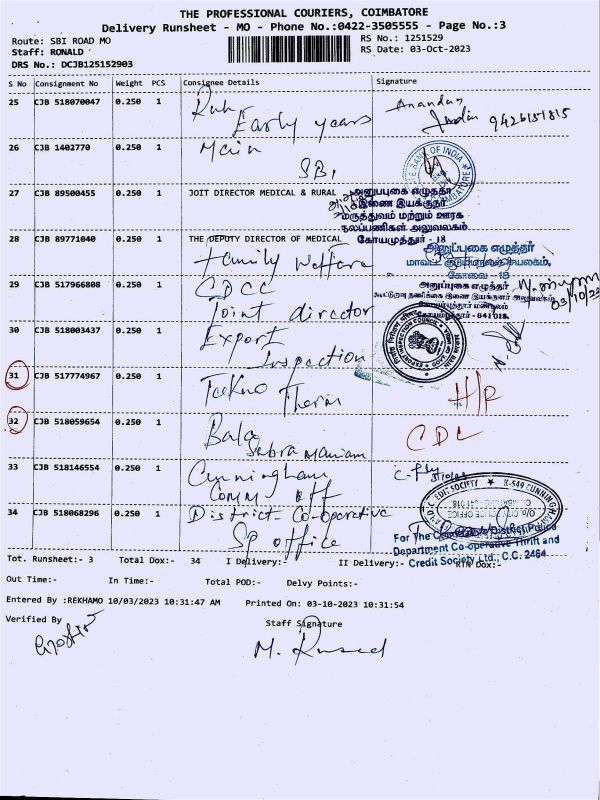 THE PROFESSIONAL COURIERS, COIMBATORE
Delivery Runsheet - MO - Phone No.:0422-3505555 - Page No.:3
Route: SBI ROAD MO
RS No.: 1251529
Staff: RONALD
RS Date: 03-Oct-2023
DRS No.: DCJB125152903
S No Consignment No Weight PCS Consignee Details Signature
25 CJB 518070047 0.250 1
Early years
9426151815
26 CJB 1402770 0.250 1 Main
SBI
BANK OF INDIA
COIMBATORE
27 CJB 89500455 0.250 1 JOIT DIRECTOR MEDICAL & RURAL
அனுப்புகை எழுத்தர்
இணை இயக்குநர்
மருத்துவம் மற்றும் ஊரக
நலப்பணிகள் அலுவலகம்
கோயமுத்தூர் - 18
28 CJB 89771040 0.250 1 THE DEPUTY DIRECTOR OF MEDICAL
Family Welfare
அனுப்புகை எழுத்தர்
கோவை -18
29 CJB 517966808 0.250 1 CDCC
Joint director
அனுப்புகை எழுத்தர்
கோயம்புத்தூர் - 641 018.
03/10/23
30 CJB 518003437 0.250 1 Export
Inspection
EXPORT INSPECTION COUNCIL
31 CJB 517774967 0.250 1 Tekno
Therm
H/R
32 CJB 518059654 0.250 1 Bala
Subramaniam
CDL
33 CJB 518146554 0.250 1 Cunningham
Comm off
34 CJB 518068296 0.250 1 District Co-operative
SP office
CREDIT SOCIETY K-549 CUNNINGHAM
For The Coimbatore District Police
Department Co-operative Thrift and
Credit Society Ltd., C.C. 2464
Tot. Runsheet:- 3 Total Dox:- 34 I Delivery:- II Delivery:- RTN Dox:-
Out Time:- In Time:- Total POD:- Delvy Points:-
Entered By :REKHAMO 10/03/2023 10:31:47 AM Printed On: 03-10-2023 10:31:54
Verified By
Staff Signature